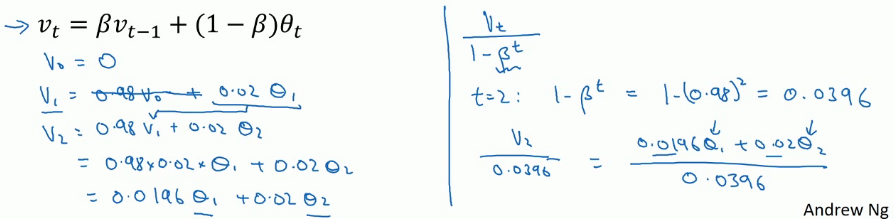 → vₜ = βvₜ₋₁ + (1 − β)θₜ
V₀ = 0
V₁ = 0.98 V₀ + 0.02 θ₁
V₂ = 0.98 V₁ + 0.02 θ₂
= 0.98 × 0.02 × θ₁ + 0.02 θ₂
= 0.0196 θ₁ + 0.02 θ₂
Vₜ
1 − βᵗ
t=2: 1 − βᵗ = 1 − (0.98)² = 0.0396
V₂ / 0.0396 = 0.0196θ₁ + 0.02θ₂ / 0.0396
Andrew Ng